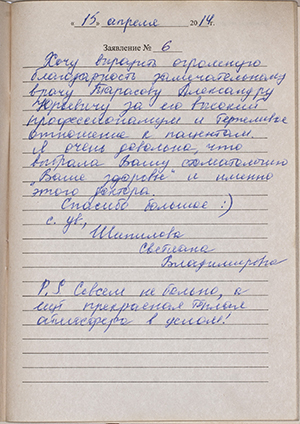 « 15 » апреля 2014 г.
Заявление № 6
Хочу выразить огромную
благодарность замечательному
врачу Тарасову Александру
Юрьевичу за его высокий
профессионализм и терпеливое
отношение к пациентам.
Я очень довольна, что
выбрала Вашу стоматологию
"Ваше здоровье" и именно
этого доктора.
Спасибо большое :)
С ув.,
Шипилова
Светлана
Владимировна
P.S Совсем не больно, а
ещё прекрасная тёплая
атмосфера в целом!